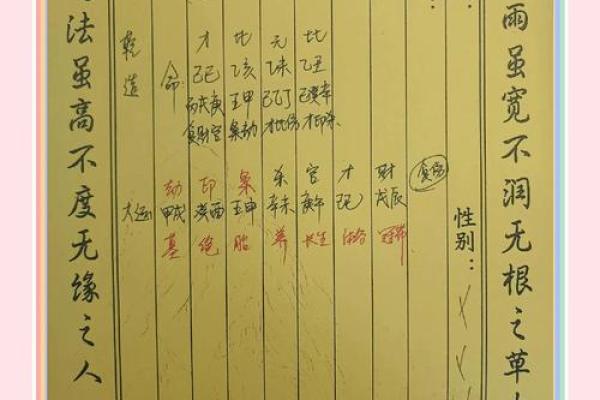 雨虽宽不润无根之草
性别：
乾造
命
才 比 元 比
己巳 乙亥 乙未 乙丑
丙戊庚 壬甲 己乙丁 己癸辛
财官 枭劫 才比 才印杀
大运
劫 印 枭 杀 官 才 财
甲戌 癸酉 壬申 辛未 庚午 己巳 戊辰
墓 绝 胎 养 长生 沐浴 冠带
法虽高不度无缘之人